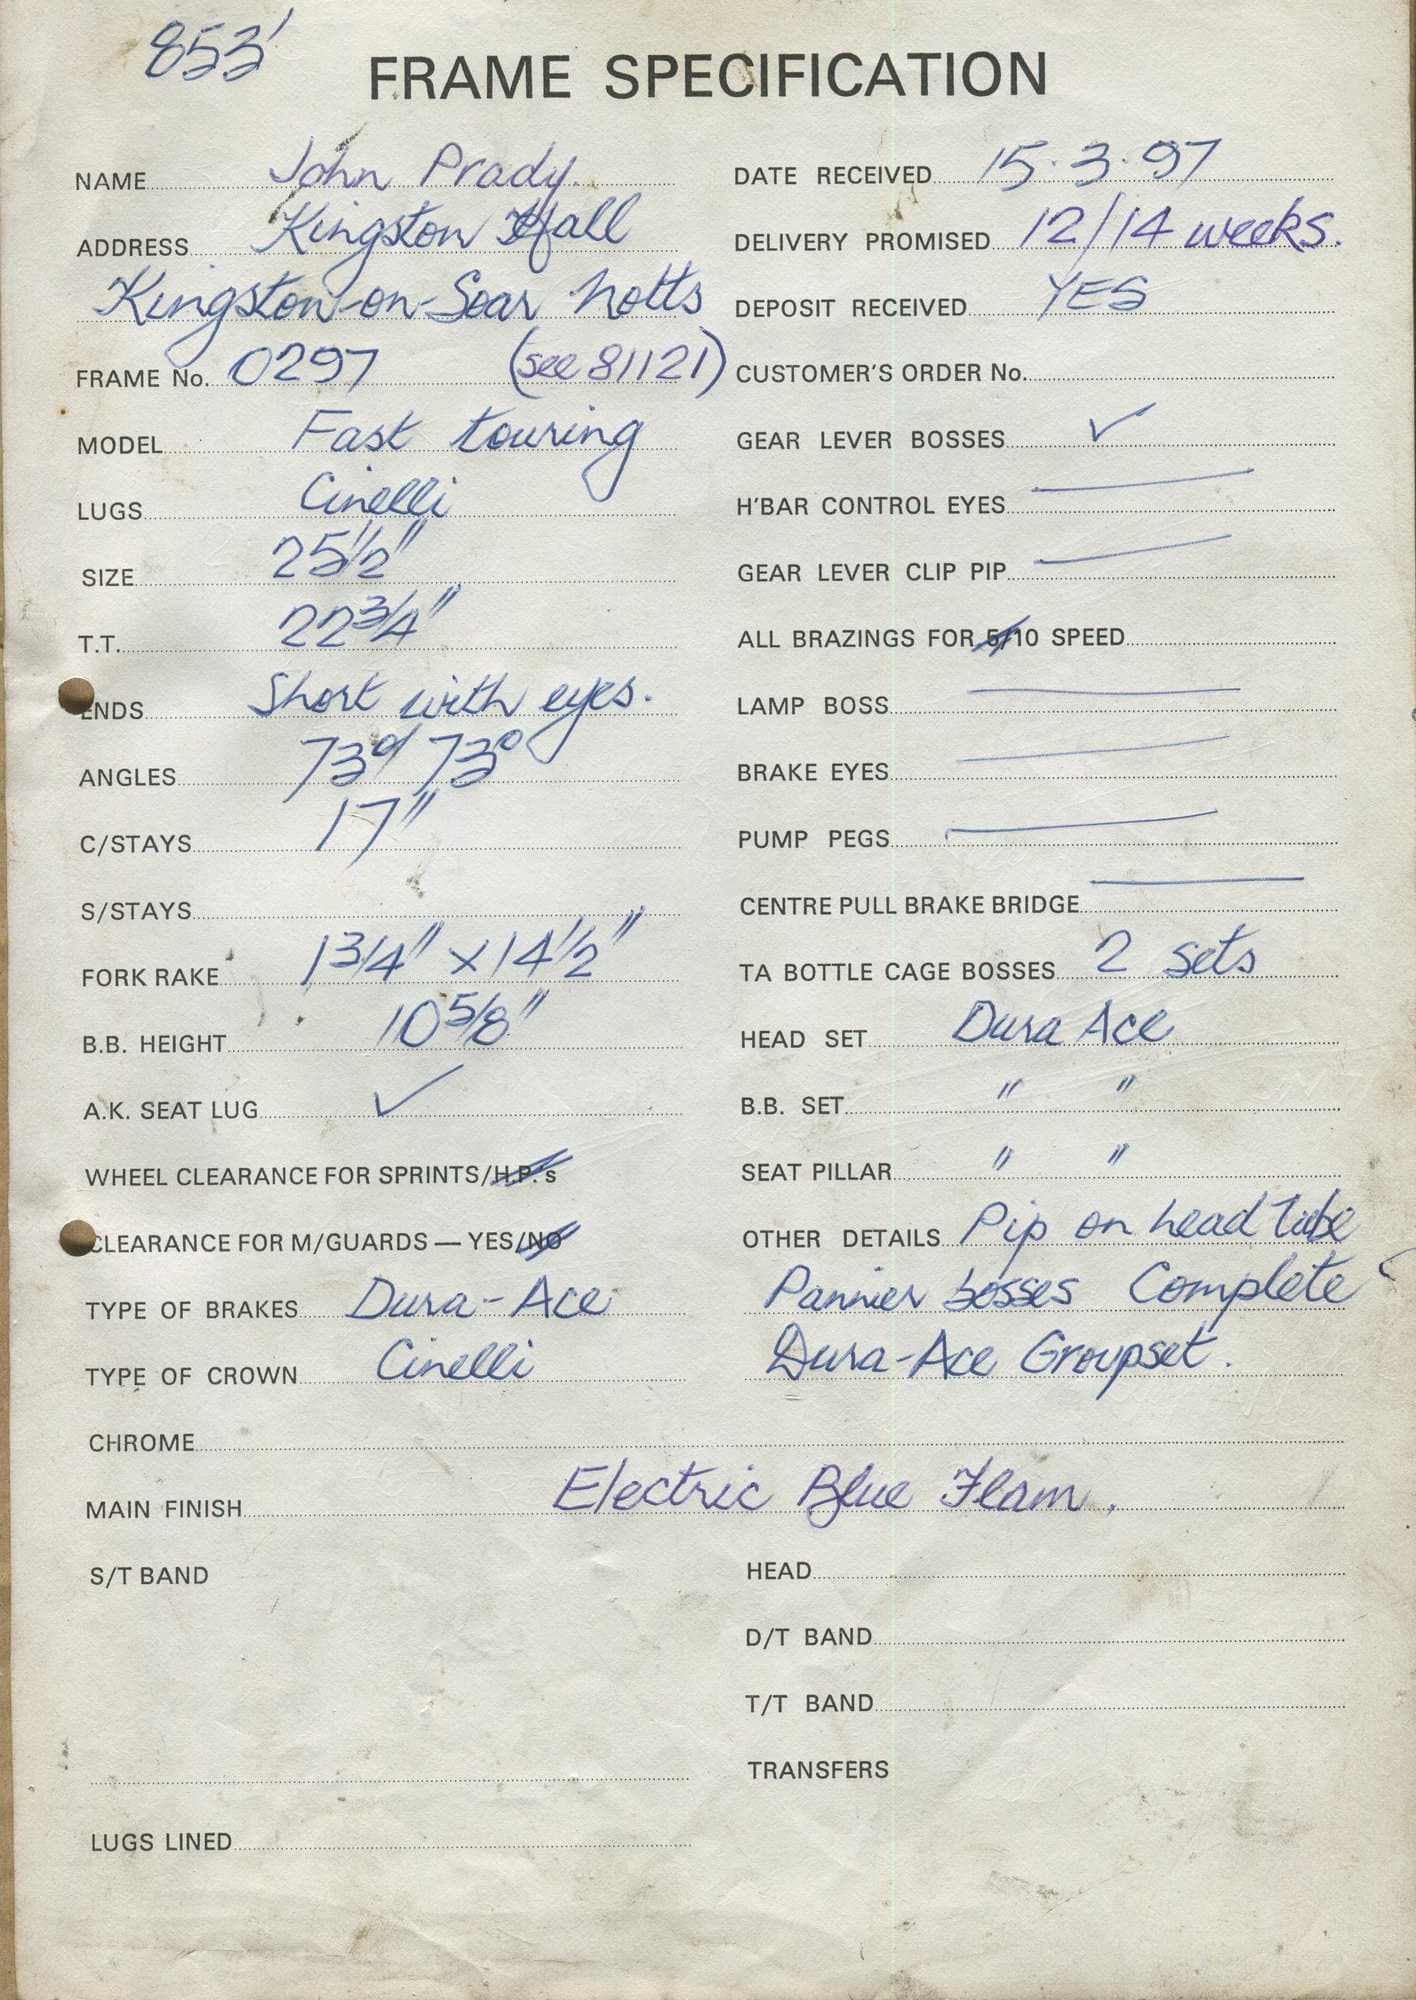 853'
FRAME SPECIFICATION
NAME John Prady.
ADDRESS Kingston Hall
Kingston-on-Soar Notts
FRAME No. 0297 (see 81121)
MODEL Fast touring
LUGS Cinelli
SIZE 25 1/2"
T.T. 22 3/4"
ENDS Short with eyes.
ANGLES 73°/ 73°
C/STAYS 17"
S/STAYS
FORK RAKE 1 3/4" x 14 1/2"
B.B. HEIGHT 10 5/8"
A.K. SEAT LUG ✓
WHEEL CLEARANCE FOR SPRINTS/H.P.'s
CLEARANCE FOR M/GUARDS — YES/NO
TYPE OF BRAKES Dura-Ace
TYPE OF CROWN Cinelli
DATE RECEIVED 15.3.97
DELIVERY PROMISED 12/14 weeks.
DEPOSIT RECEIVED YES
CUSTOMER'S ORDER No.
GEAR LEVER BOSSES ✓
H'BAR CONTROL EYES —
GEAR LEVER CLIP PIP —
ALL BRAZINGS FOR 5/10 SPEED
LAMP BOSS —
BRAKE EYES —
PUMP PEGS —
CENTRE PULL BRAKE BRIDGE —
TA BOTTLE CAGE BOSSES 2 sets
HEAD SET Dura Ace
B.B. SET " "
SEAT PILLAR " "
OTHER DETAILS Pip on head tube
Pannier bosses Complete
Dura-Ace Groupset.
CHROME
MAIN FINISH Electric Blue Flam.
S/T BAND
HEAD
D/T BAND
T/T BAND
TRANSFERS
LUGS LINED